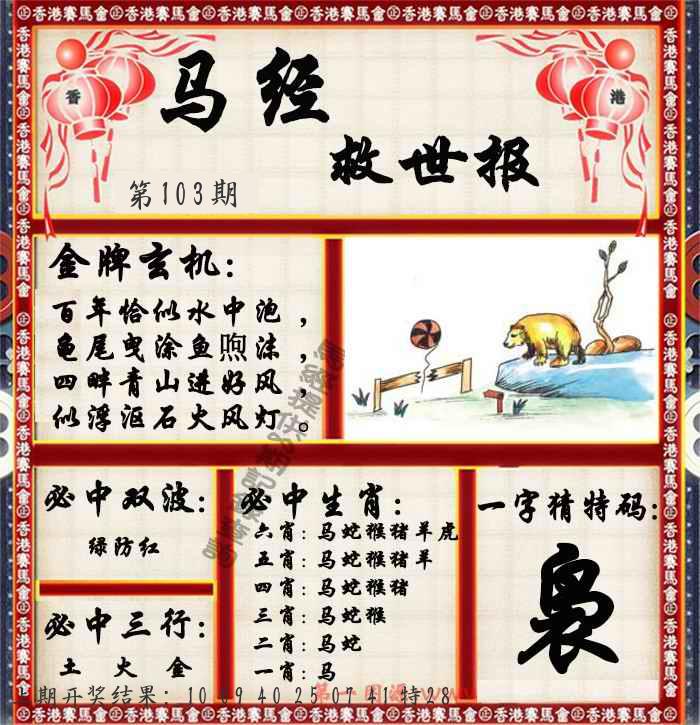 香港賽馬會
香 港
马经
救世报
第103期
金牌玄机：
百年恰似水中泡，
龟尾曳涂鱼煦沫，
四畔青山进好风，
似浮沤石火风灯。
必中双波：
绿防红
必中三行：
土 火 金
必中生肖：
六肖：马蛇猴猪羊虎
五肖：马蛇猴猪羊
四肖：马蛇猴猪
三肖：马蛇猴
二肖：马蛇
一肖：马
一字猜特码：
袅
期开奖结果：10 09 40 25 07 41 特28